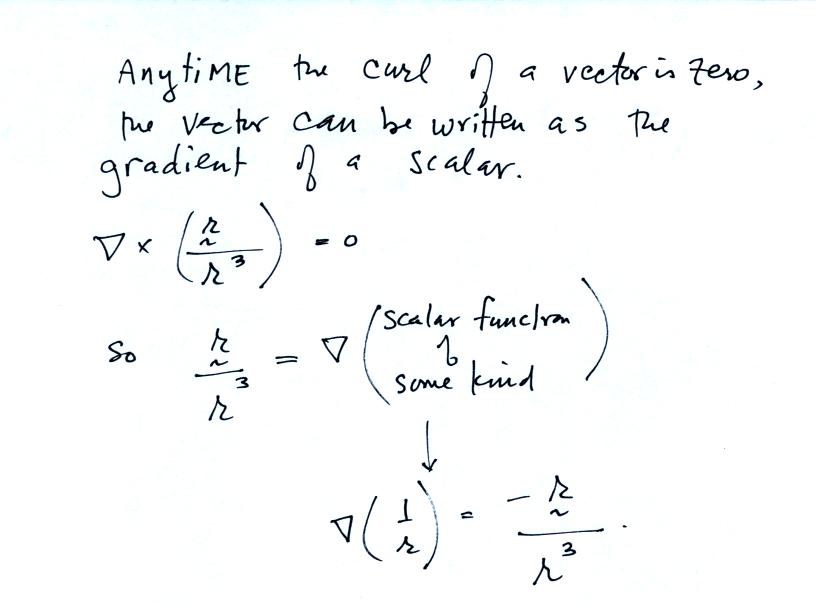 AnytiME the curl of a vector is zero,
the vector can be written as the
gradient of a scalar.
∇ × (r̰ / r³) = 0
So r̰ / r³ = ∇ (scalar function of some kind)
↓
∇(1/r) = −r̰ / r³.